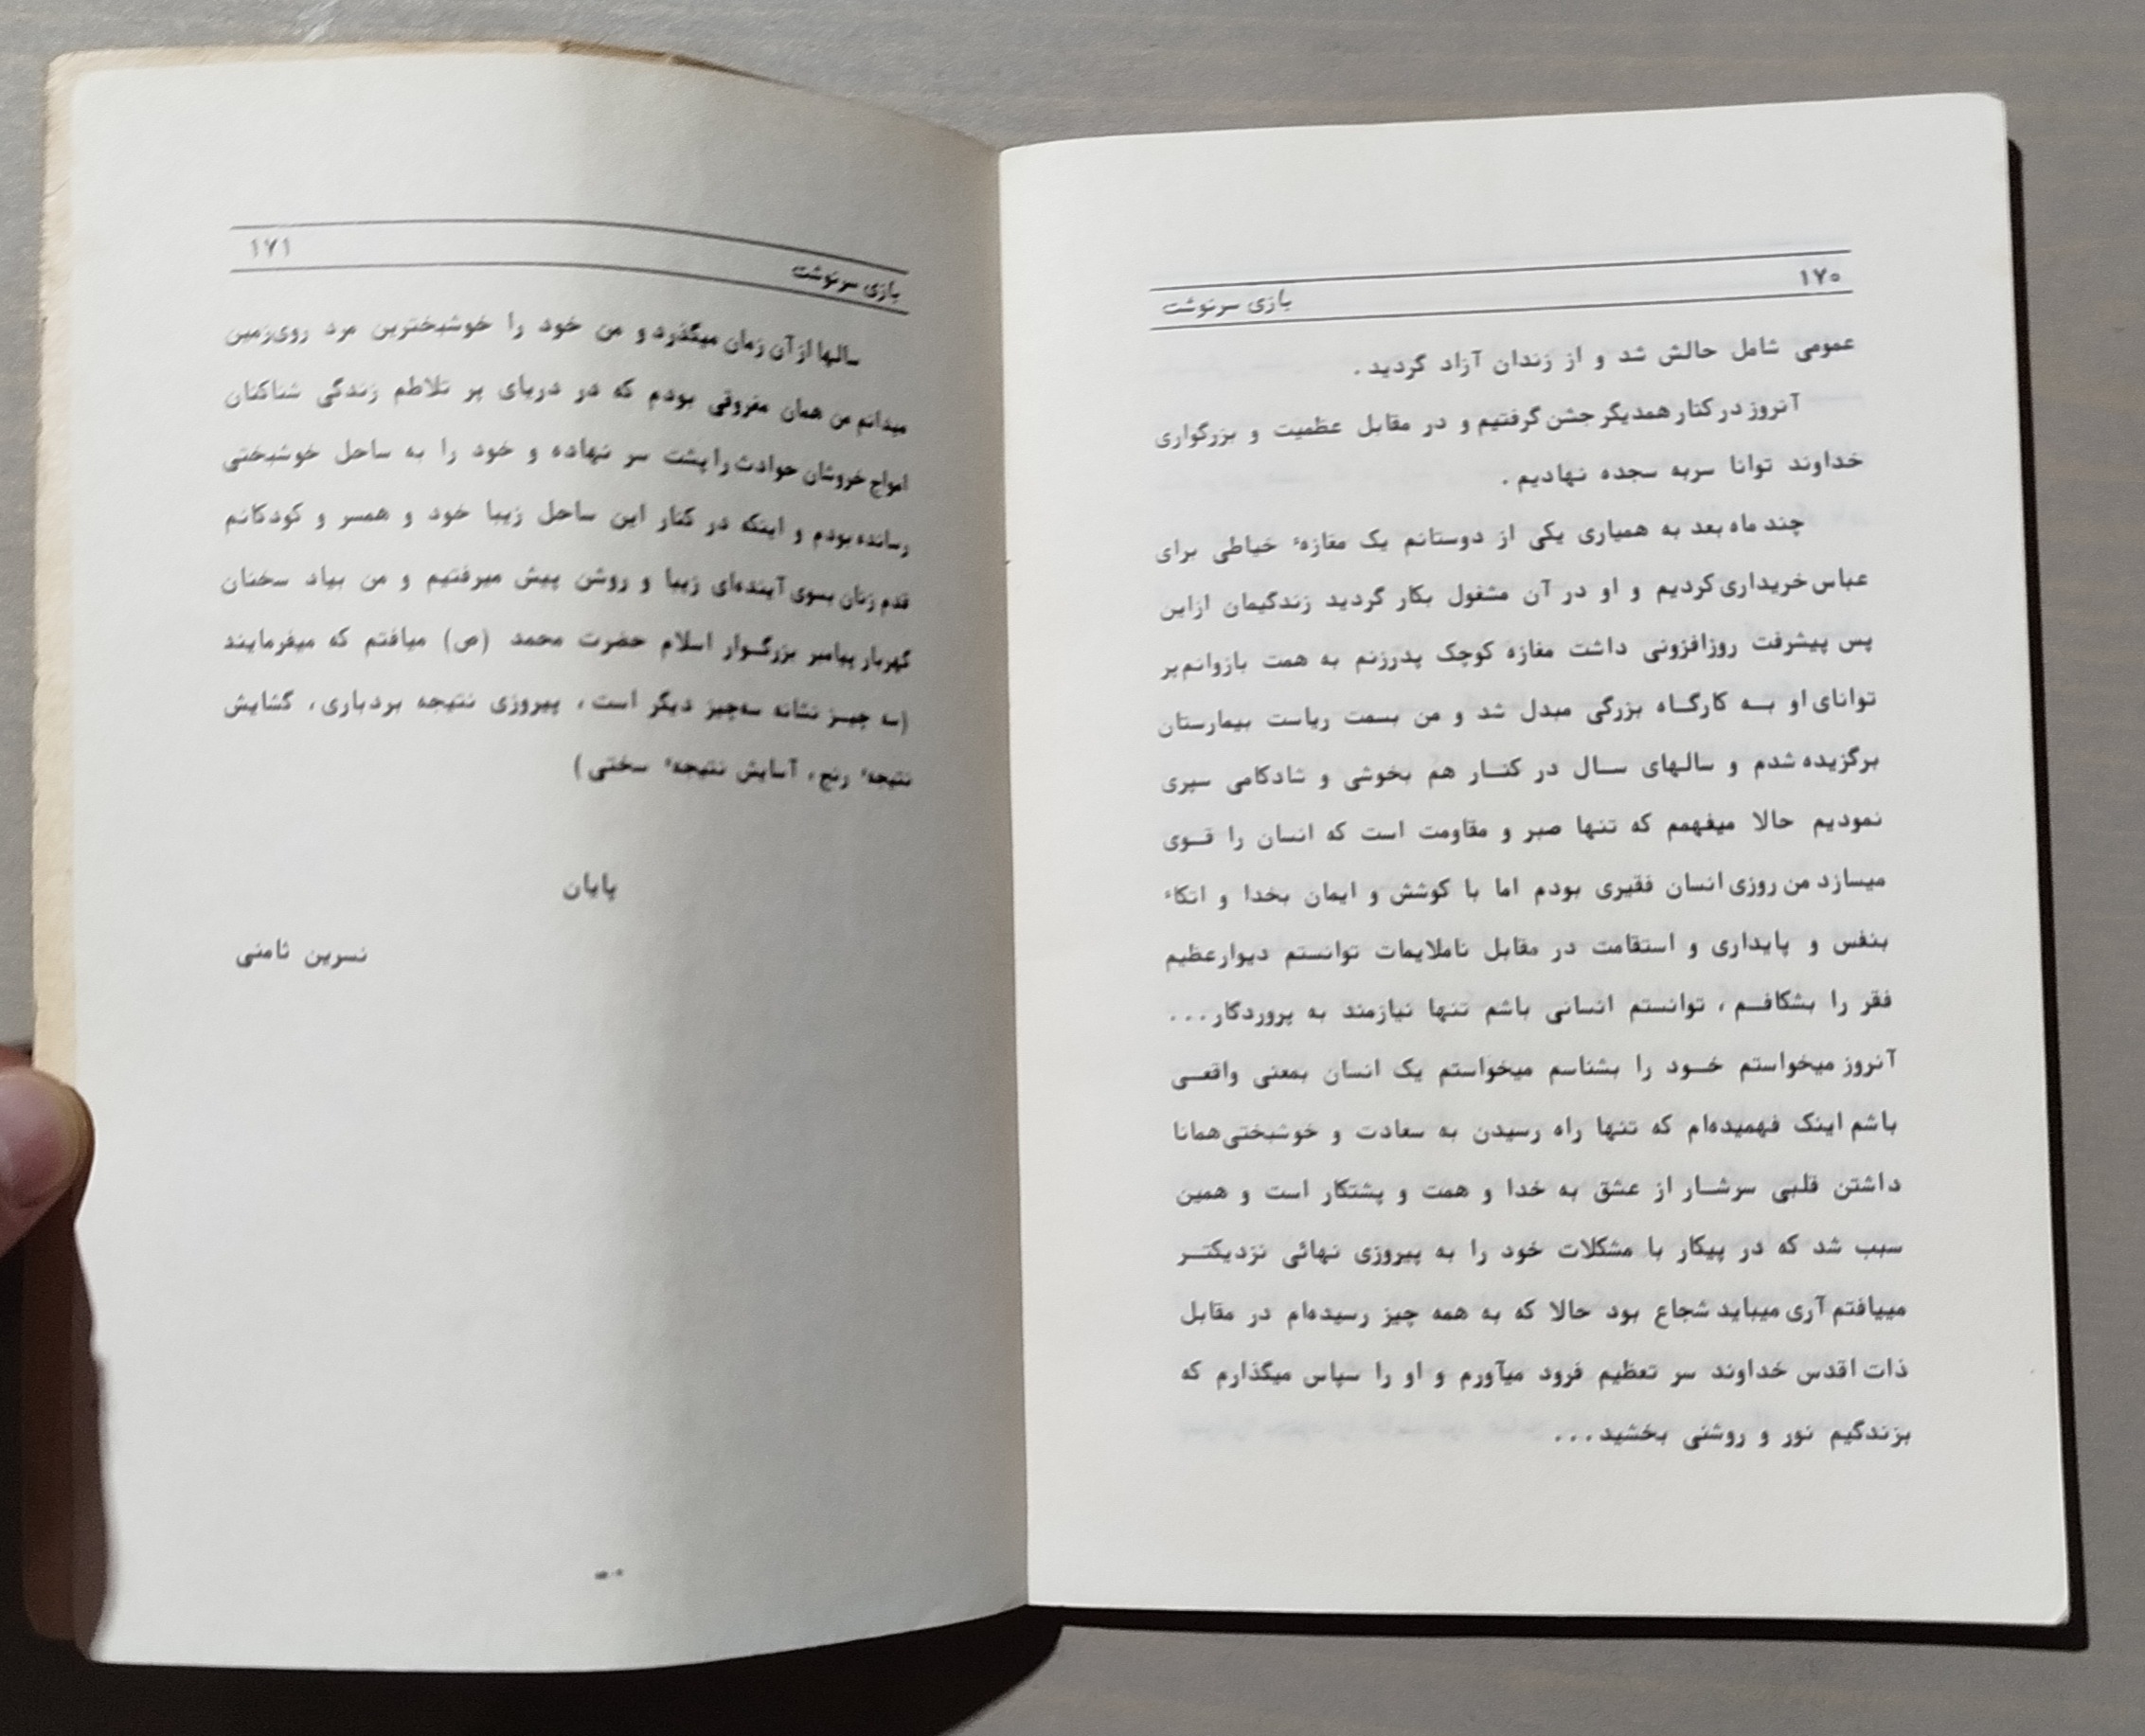 ۱۷۰
بازی سرنوشت
عمومی شامل حالش شد و از زندان آزاد گردید .
آنروز در کنار همدیگر جشن گرفتیم و در مقابل عظمیت و بزرگواری
خداوند توانا سربه سجده نهادیم .
چند ماه بعد به همیاری یکی از دوستانم یک مغازهٔ خیاطی برای
عباس خریداری کردیم و او در آن مشغول بکار گردید زندگیمان ازاین
پس پیشرفت روزافزونی داشت مغازه کوچک پدرزنم به همت بازوانم پر
توانای او بـه کارگـاه بزرگی مبدل شد و من بسمت ریاست بیمارستان
برگزیده شدم و سالهای سـال در کنـار هم بخوشی و شادکامی سپری
نمودیم حالا میفهمم که تنها صبر و مقاومت است که انسان را قـوی
میسازد من روزی انسان فقیری بودم اما با کوشش و ایمان بخدا و اتکاء
بنفس و پایداری و استقامت در مقابل ناملایمات توانستم دیوارعظیم
فقر را بشکافـم ، توانستم انسانی باشم تنها نیازمند به پروردگار . . .
آنروز میخواستم خـود را بشناسم میخواستم یک انسان بمعنی واقعـی
باشم اینک فهمیده‌ام که تنها راه رسیدن به سعادت و خوشبختی همانا
داشتن قلبی سرشـار از عشق به خدا و همت و پشتکار است و همین
سبب شد که در پیکار با مشکلات خود را به پیروزی نهائی نزدیکتـر
مییافتم آری میباید شجاع بود حالا که به همه چیز رسیده‌ام در مقابل
ذات اقدس خداوند سر تعظیم فرود میآورم و او را سپاس میگذارم که
بزندگیم نور و روشنی بخشید . . .
بازی سرنوشت
۱۷۱
سالها از آن زمان میگذرد و من خود را خوشبخترین مرد روی‌زمین
میدانم من همان مغروقی بودم که در دریای پر تلاطم زندگی شناکنان
امواج خروشان حوادث را پشت سر نهاده و خود را به ساحل خوشبختی
رسانده بودم و اینکه در کنار این ساحل زیبا خود و همسر و کودکانم
قدم زنان بسوی آینده‌ای زیبا و روشن پیش میرفتیم و من بیاد سخنان
گهربار پیامبر بزرگـوار اسلام حضرت محمد (ص) میافتم که میفرمایند
(سه چیـز نشانه سه‌چیز دیگر است ، پیروزی نتیجه بردباری ، گشایش
نتیجهٔ رنج ، آسایش نتیجهٔ سختی )
پایان
نسرین ثامنی